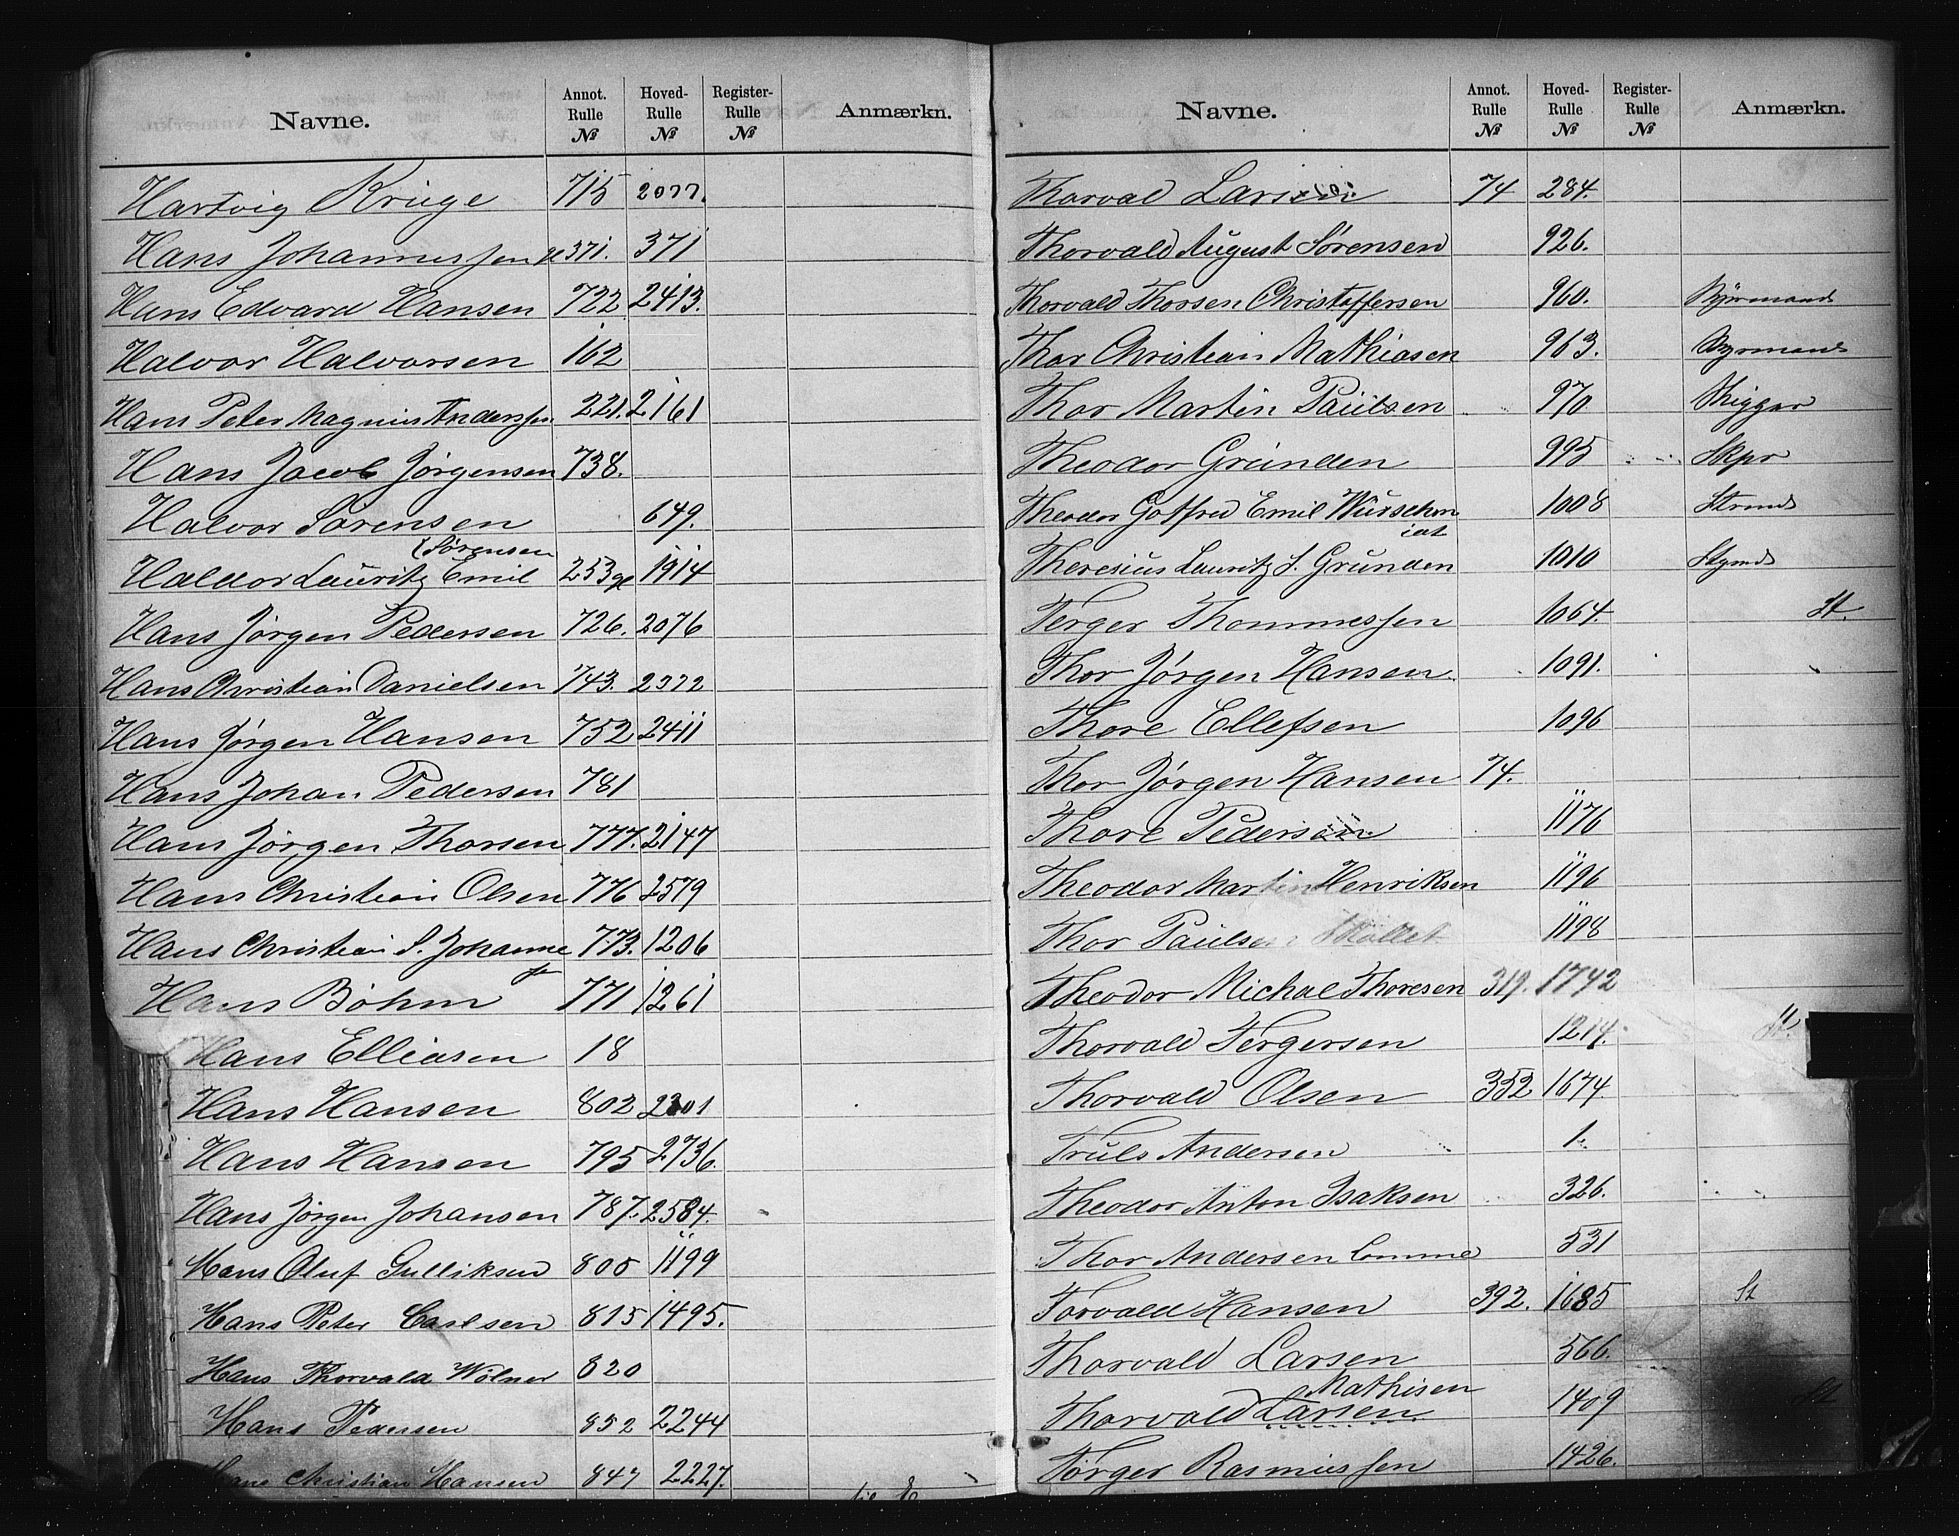 Navne. Annot. Rulle № Hoved-Rulle № Register-Rulle № Anmærkn.
Hartvig Kruge 715 2077.
Hans Johannessen 371. 371
Hans Edvard Hansen 722 2413.
Halvor Halvorsen 162
Hans Peter Magnus Anderssen 221. 2161
Hans Jacob Jørgensen 738.
Halvor Sørensen 649.
(Sørensen
Haldor Lauritz Emil 253 1914
Hans Jørgen Pedersen 726. 2076
Hans Christian Danielsen 743. 2372
Hans Jørgen Hansen 752 2411
Hans Johan Pedersen 781
Hans Jørgen Thorsen 777. 2147
Hans Christian Olsen 776 2579
Hans Christian S. Johannesen 773. 1206
Hans Bøhm 771 1261
Hans Elliasen 18
Hans Hansen 802 2301
Hans Hansen 795 2736.
Hans Jørgen Johansen 787. 2584.
Hans Oluf Gulliksen 805 1199
Hans Peter Carlsen 815 1495.
Hans Thorvald Wølner 820
Hans Pedersen 852 2244
Hans Christian Hansen 847 2227.
Navne. Annot. Rulle № Hoved-Rulle № Register-Rulle № Anmærkn.
Thorvald Larsen 74 284.
Thorvald August Sørensen 926.
Thorvald Thorsen Christoffersen 960. Styrmand
Thor Christian Mathiasen 963. Styrmand
Thor Martin Paulsen 970 Rigger
Theodor Grunden 995 Skpr
Theodor Gotfred Emil Wurschmidt 1008 Strmd
Theresius Lauritz S. Grunden 1010 Stymd
Terger Thommessen 1064. St.
Thor Jørgen Hansen 1091.
Thore Ellefsen 1096
Thor Jørgen Hansen 74.
Thore Pedersen 1176
Theodor Martin Henriksen 1196
Thor Paulsen Møllet 1198
Theodor Michal Thoresen 319. 1742
Thorvald Tergersen 1214. St.
Thorvald Olsen 352 1674.
Truls Andersen 1.
Theodor Anton Isaksen 326.
Thor Andersen Comme 531
Torvald Hansen 392. 1685 St
Thorvald Larsen 566.
Mathisen
Thorvald Larsen 1409 St
Torger Rasmussen 1426.